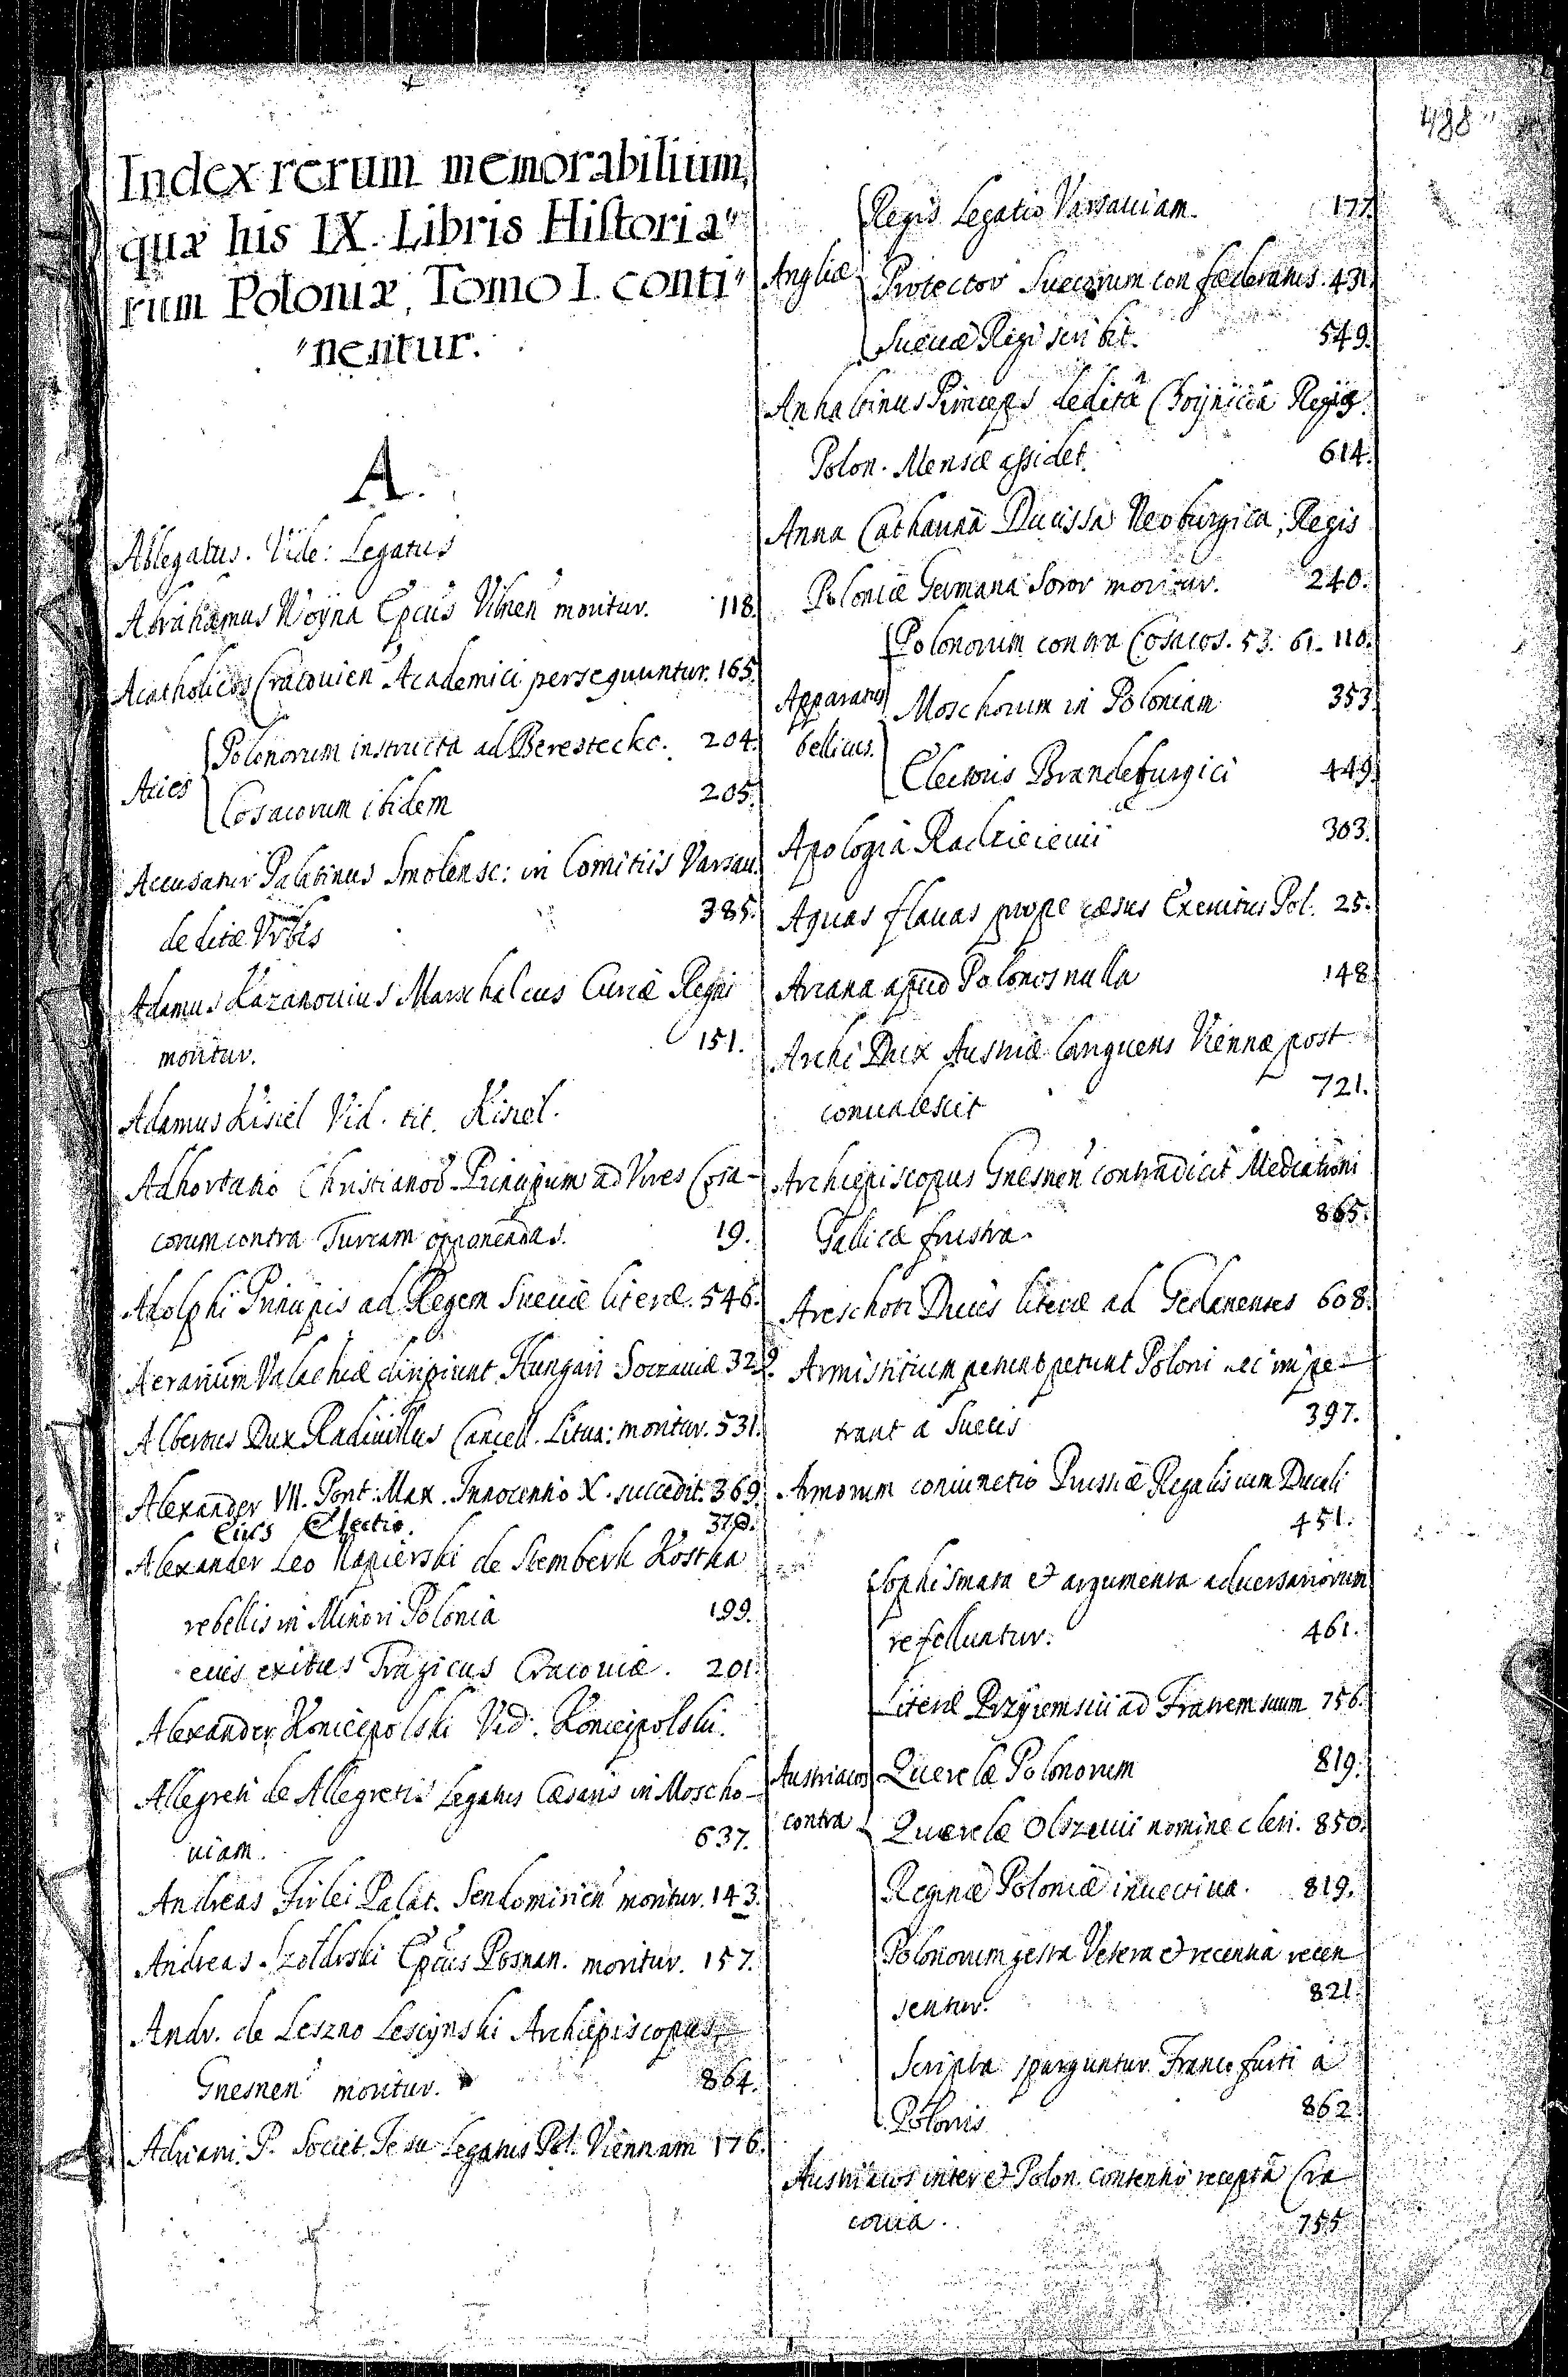 488
Index rerum memorabilium,
quæ his IX. Libris Historia"
rum Poloniæ, Tomo I. conti"
"nentur.
A.
Ablegatus. Vide: Legatus
Abrahamus Woyna Epcus Vilnen moritur. 118.
Acatholicos Cracouien Academici persequuntur. 165.
Acies
Polonorum instructa ad Beresteckc. 204.
Cosacorum ibidem 205.
Accusatur Palatinus Smolensc: in Comitiis Varsau.
deditæ Vrbis 385.
Adamus Kazanouius Marschalcus Curiæ Regni
moritur. 151.
Adamus Kisiel Vid. tit. Kisiel.
Adhortatio Christianoȓ Principum ad Vires Cosa-
corum contra Turcam opponendas. 19.
Adolphi Principis ad Regem Sueciæ literæ. 546.
Aerarium Valachiæ diripiunt Hungari Soczauiæ 329.
Albertus Dux Radiuillus Cancell. Litua: moritur. 531.
Alexander VII. Pont. Max. Innocentio X. succedit. 369.
Eius Electio. 370.
Alexander Leo Napierski de Sternberk Kostka
rebellis in Minori Polonia 199.
eius exitus Tragicus Cracouiæ. 201.
Alexander Koniecpolski Vid. Koniecpolski.
Allegreti de Allegretis Legatus Cæsaris in Moscho-
uiam. 637.
Andreas Firlei Palat. Sendomirien moritur. 143.
Andreas Szołdrski Epcus Posnan. moritur. 157.
Andr. de Leszno Lescynski Archiepiscopus
Gnesnen moritur. 864.
Adriani P. Societ. Jesu Legatus Pol. Viennam 176.
Angliæ
Regis Legatio Varsauiam. 177.
Protector Suecorum confæderatus. 431.
Sueciæ Regi scribit. 549.
Anhaltinus Princeps dedita Choijnicia Regiæ
Polon. Mensæ assidet. 614.
Anna Catharina Ducissa Neoburgica, Regis
Poloniæ Germana Soror moritur. 240.
Apparatus
bellicus.
Polonorum contra Cosacos. 53. 61. 110.
Moschorum in Poloniam 353.
Electoris Brandeburgici 449.
Apologia Radzieiewii 303.
Aquas flauas prope cæsus Exercitus Pol. 25.
Ariana apud Polonos nulla 148.
Archi Dux Austriæ languens Viennæ post
conualescit 721.
Archiepiscopus Gnesnen contradicit Mediationi
Gallicæ frustra. 865.
Areschoti Ducis literæ ad Gedanenses 608.
Armistitium petunt Poloni nec impe-
trant a Suecis 397.
Armorum coniunctio Prussiæ Regalis cum Ducali
451.
Austriacos
contra
Sophismata et argumenta aduersariorum
refelluntur. 461.
Literæ Przyiemscii ad Fratrem suum 756.
Querelæ Polonorum 819.
Querelæ Olszouii nomine cleri. 850.
Reginæ Poloniæ inuectiua. 819.
Polonorum gesta Vetera et recentia recen
sentur. 821.
Scripta sparguntur Francofurti a
Polonis 862.
Austriacos inter et Polon. contentio recepta Cra
couia. 755